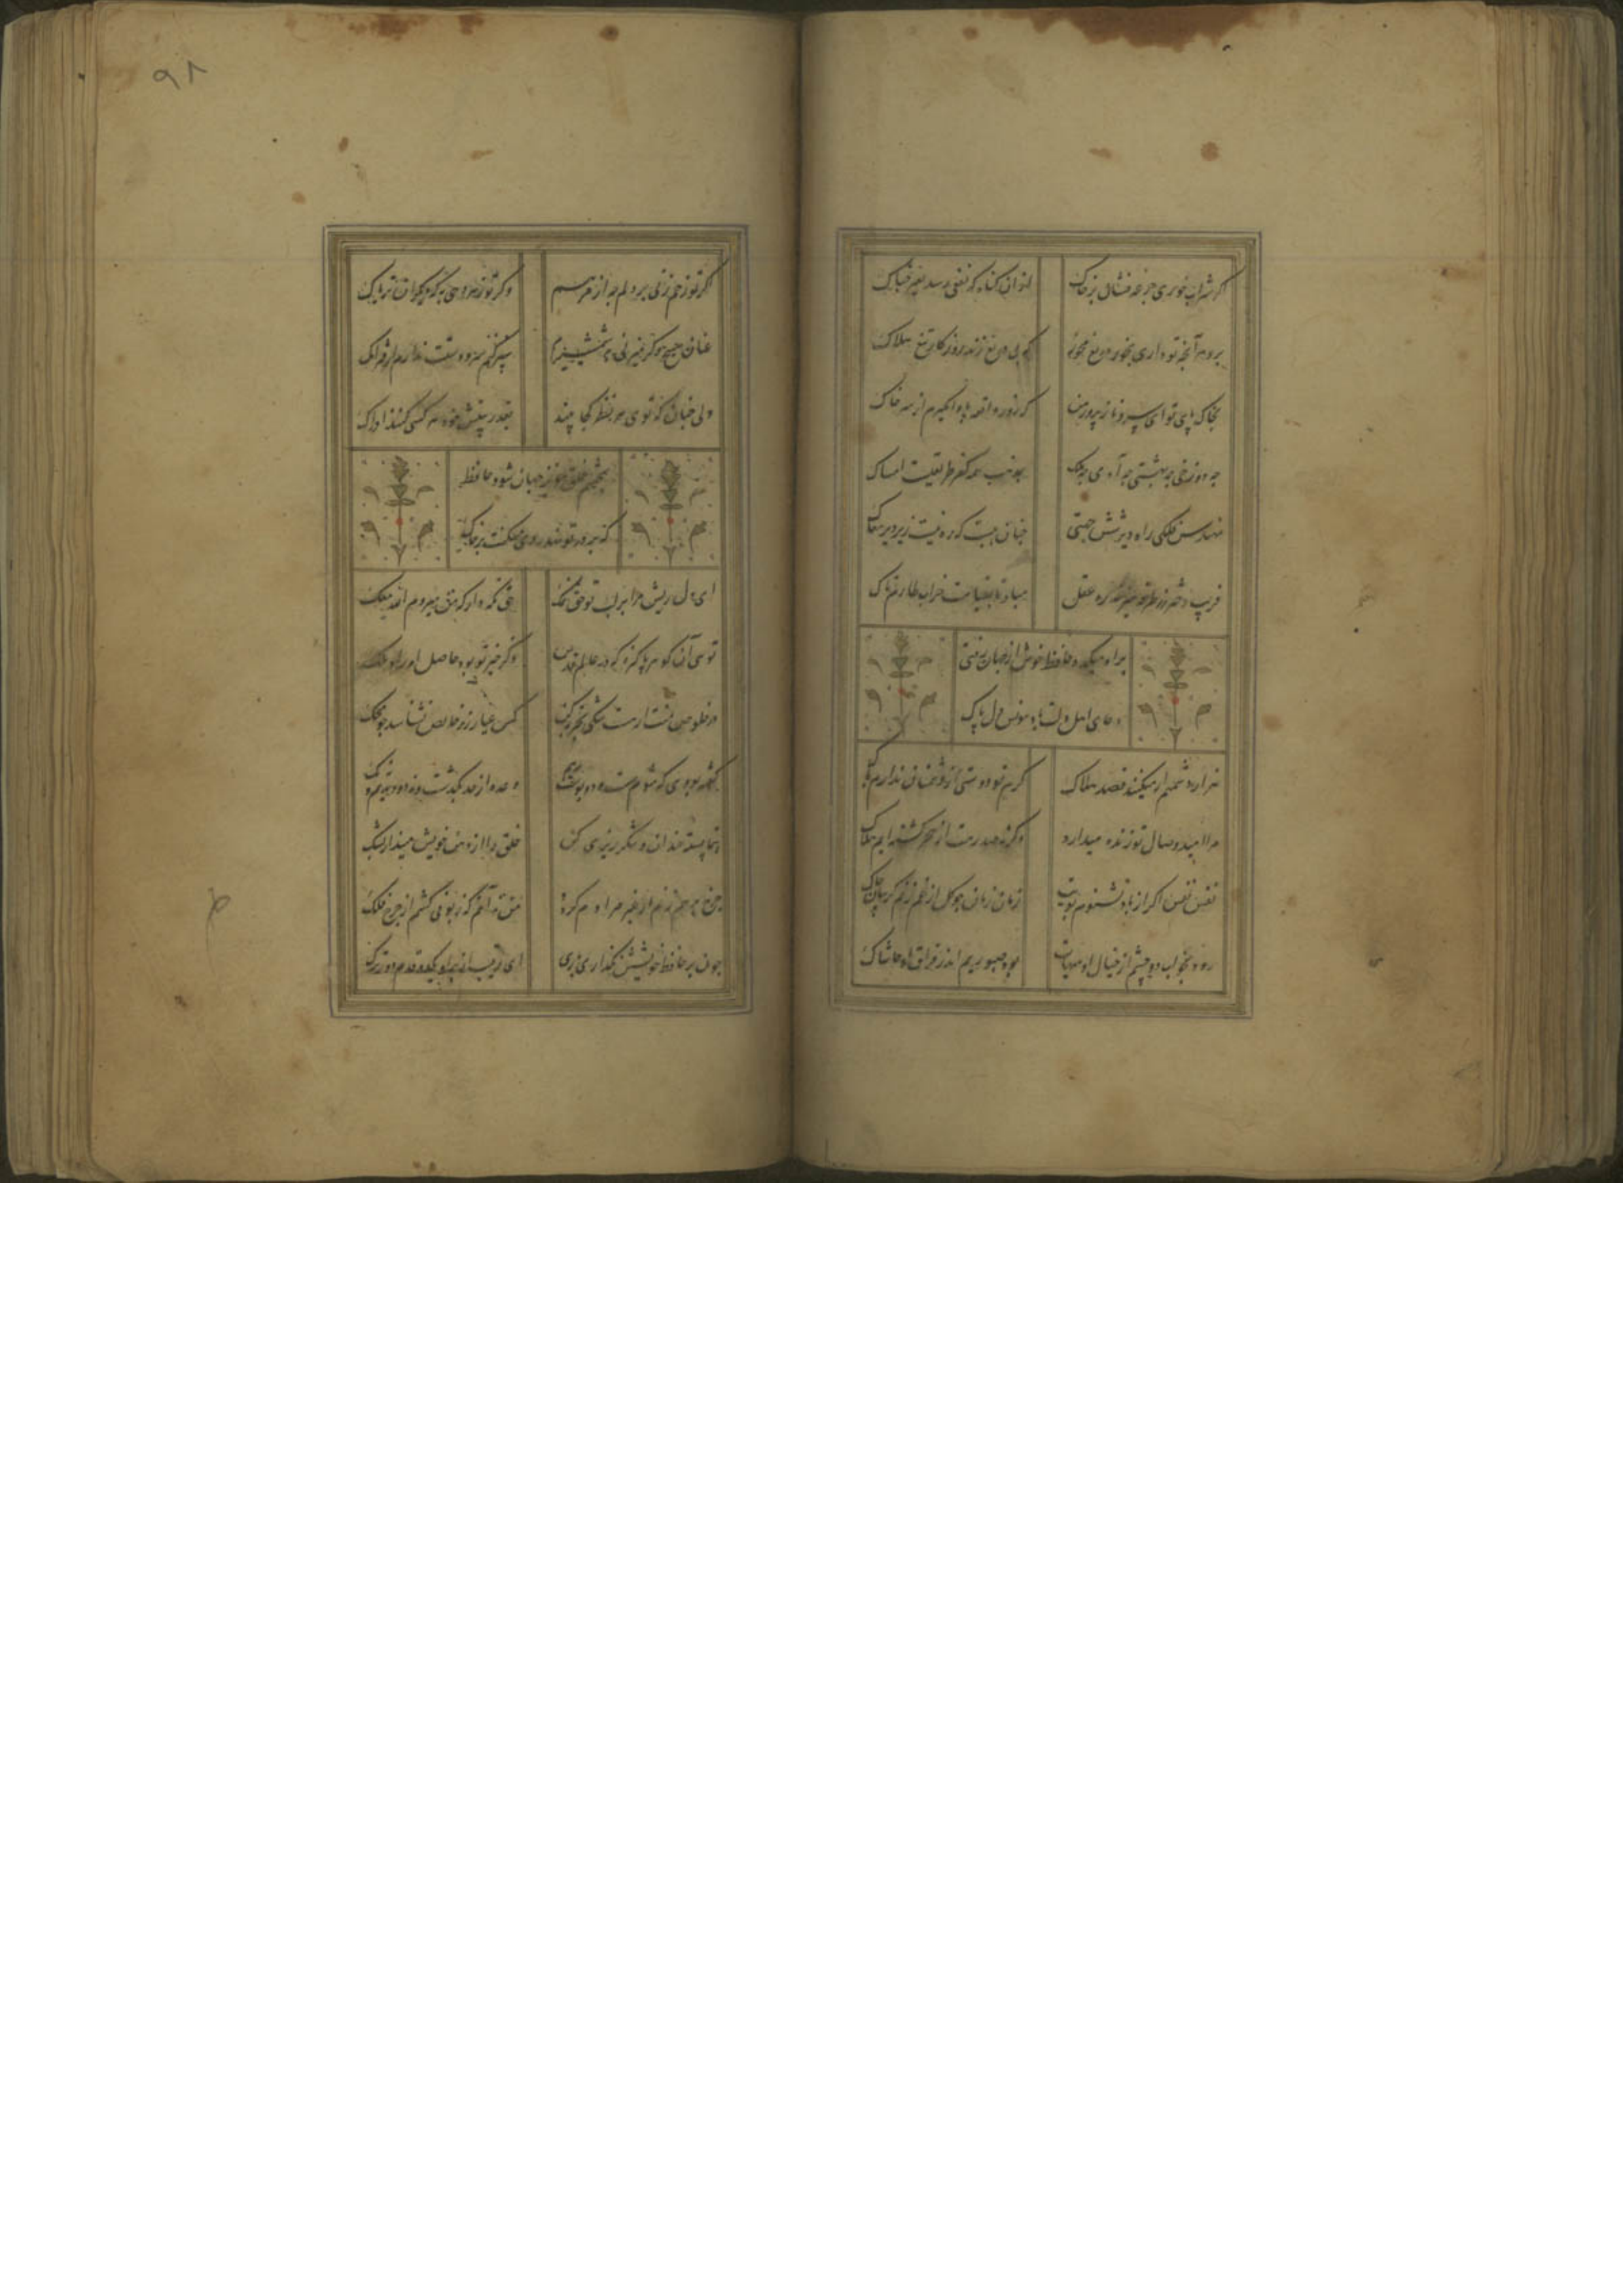 اکر شراب خوری جرعه فشان بر خاک
از ان کناه که نفعی رسد بغیر چه باک
برو هر آنچه تو داری بخور دریغ مخور
که بی دریغ زند روزکار تیغ هلاک
بخاک پای تو ای سرو ناز پرور من
که روز واقعه پا وامکیرم از سر خاک
چه دوزخی چه بهشتی چه آدمی چه ملک
بمذهب همه کفر طریقت امساک
مهندس فلکی راه دیر شش جهتی
چنان ببست که ره نیست زیر دیر مغاک
فریب دختر رز طرفه میزند ره عقل
مباد تا بقیامت خراب طارم تاک
براه میکده حافظ خوش از جهان رفتی
دعای اهل دلت باد مونس دل پاک
هزار دشمنم ار میکنند قصد هلاک
کرم تو دوستی از دشمنان ندارم باک
مرا امید وصال تو زنده میدارد
وکرنه صد رهت از هجر کشته ایم هلاک
نفس نفس اکر از باد نشنوم بویت
زمان زمان چو کل از غم زنم کریبان چاک
رود بخواب دو چشم از خیال او هیهات
بود صبور دلم اندر فراق او حاشاک
۹۸
اکر تو زخم زنی به که دیکری مرهم
وکر تو زهر دهی به که دیکران تریاک
عنان مپیچ که کر میزنی بشمشیرم
سپر کنم سر و دستت ندارم از فتراک
ولی چنان که توی هر نظر کجا بیند
بقدر بینش خود هر کسی کند ادراک
بچشم خلق عزیز جهان شود حافظ
که بر در تو نهد روی مسکنت بر خاک
ای دل ریش مرا بر لب تو حق نمک
حق نکه دار که من میروم الله معک
توئی آن کوهر پاکیزه که در عالم قدس
ذکر خیر تو بود حاصل اوراد ملک
در خلوص منت ار هست شکی تجربه کن
کس عیار زر خالص نشناسد چو محک
کفته بودی که شوم مست و دو بوست بدهم
وعده از حد بکذشت و نه دو دیدیم و نه یک
بکشا پسته خندان و شکر ریزی کن
خلق را از دهن خویش مینداز بشک
چرخ بر هم زنم ار غیر مرادم کردد
من نه آنم که زبونی کشم از چرخ فلک
چون بر حافظ خویشش نکذاری باری
ای رقیب از بر او یک دو قدم دورترک